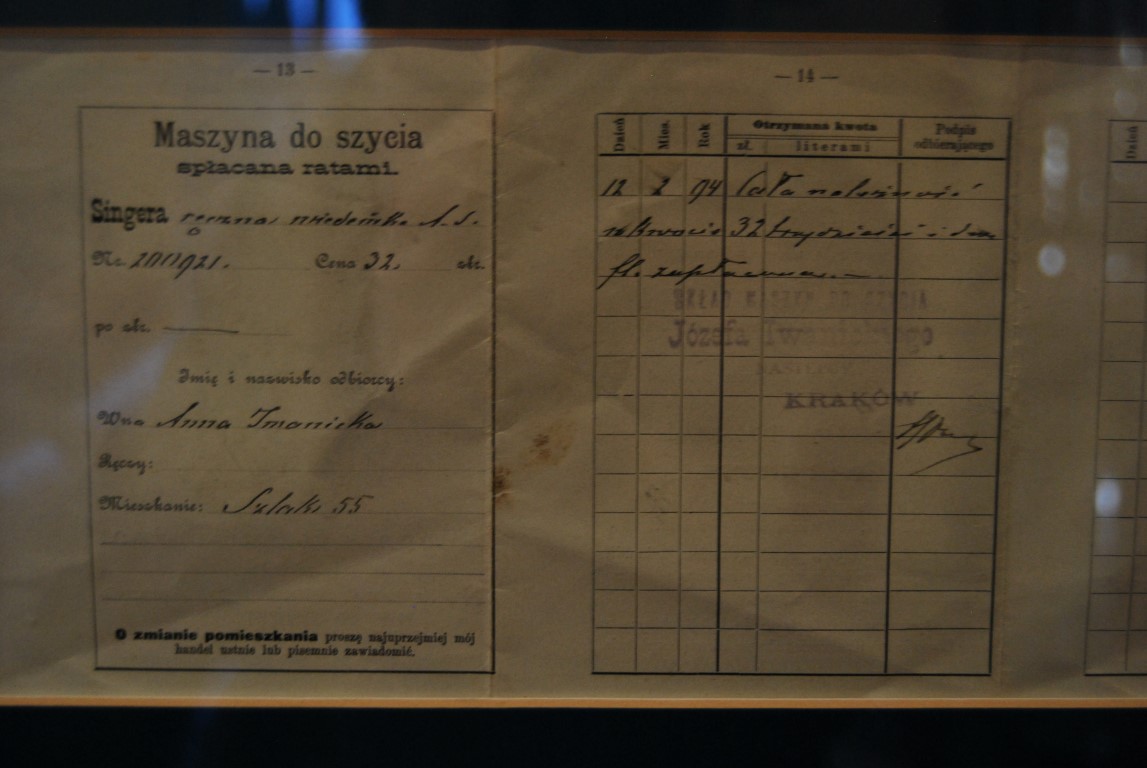 — 13 —
Maszyna do szycia
spłacana ratami.
Singera ręczna wiedeńska
Nr. Cena 32. złr.
po złr. ———
Imię i nazwisko odbiorcy:
Wna Anna
Ręczy:
Mieszkanie: Szlak 55
O zmianie pomieszkania proszę najuprzejmiej mój
handel ustnie lub pisemnie zawiadomić.
— 14 —
Dzień Mies. Rok Otrzymana kwota Podpis
odbierającego
zł. literami
12 2 94 Cała należność
w kwocie 32 trzydzieści i dwa
fl. zapłacona. —
SKŁAD MASZYN DO SZYCIA
Józefa
KRAKÓW
Dzień